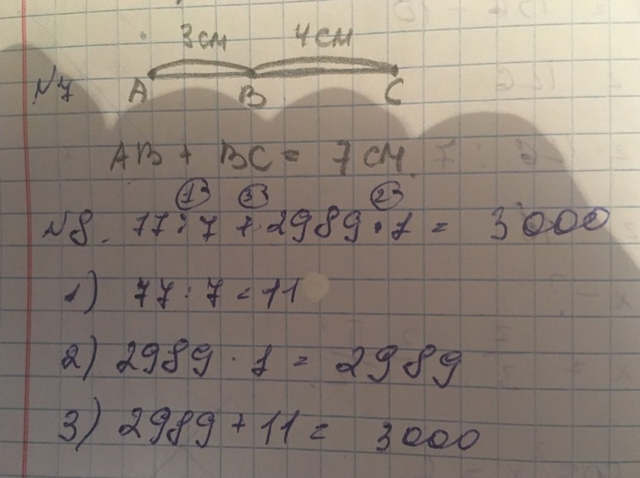 3см 4см
№7 A B C
AB + BC = 7см.
1) 3) 2)
№8. 77:7 + 2989 · 1 = 3000
1) 77:7 = 11
2) 2989 · 1 = 2989
3) 2989 + 11 = 3000